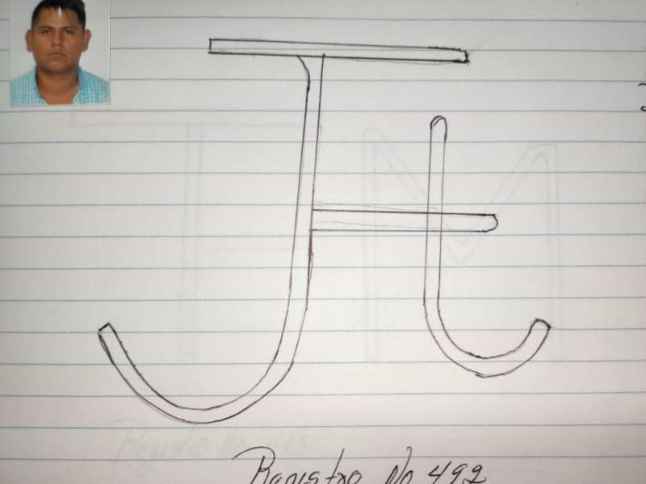 Jt
Registro No 492